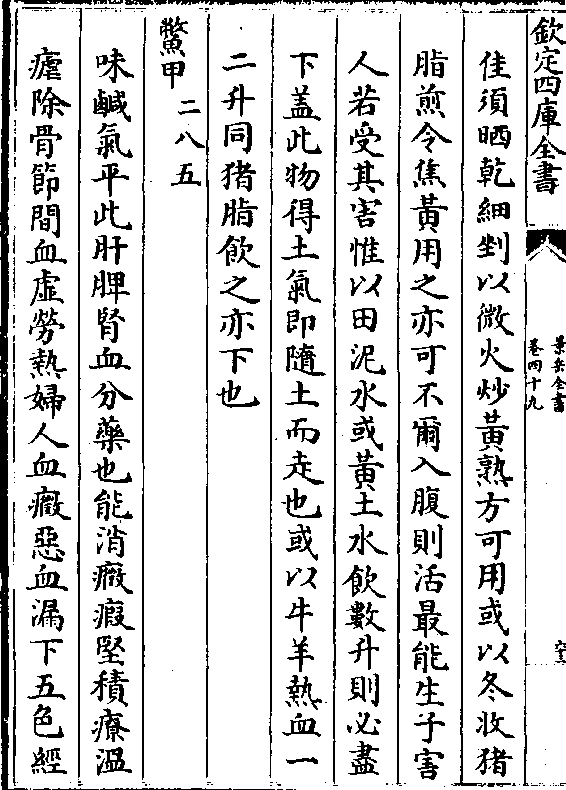 欽定四庫全書
景岳全書
卷四十九
佳須晒乾細剉以微火炒黃熟方可用或以冬收猪
脂煎令焦黃用之亦可不爾入腹則活最能生子害
人若受其害惟以田泥水或黃土水飲數升則必盡
下盖此物得土氣即隨土而走也或以牛羊熱血一
二升同猪脂飲之亦下也
鱉甲二八五
味鹹氣平此肝脾腎血分藥也能消癥瘕堅積療溫
瘧除骨節間血虛勞熱婦人血癥惡血漏下五色經